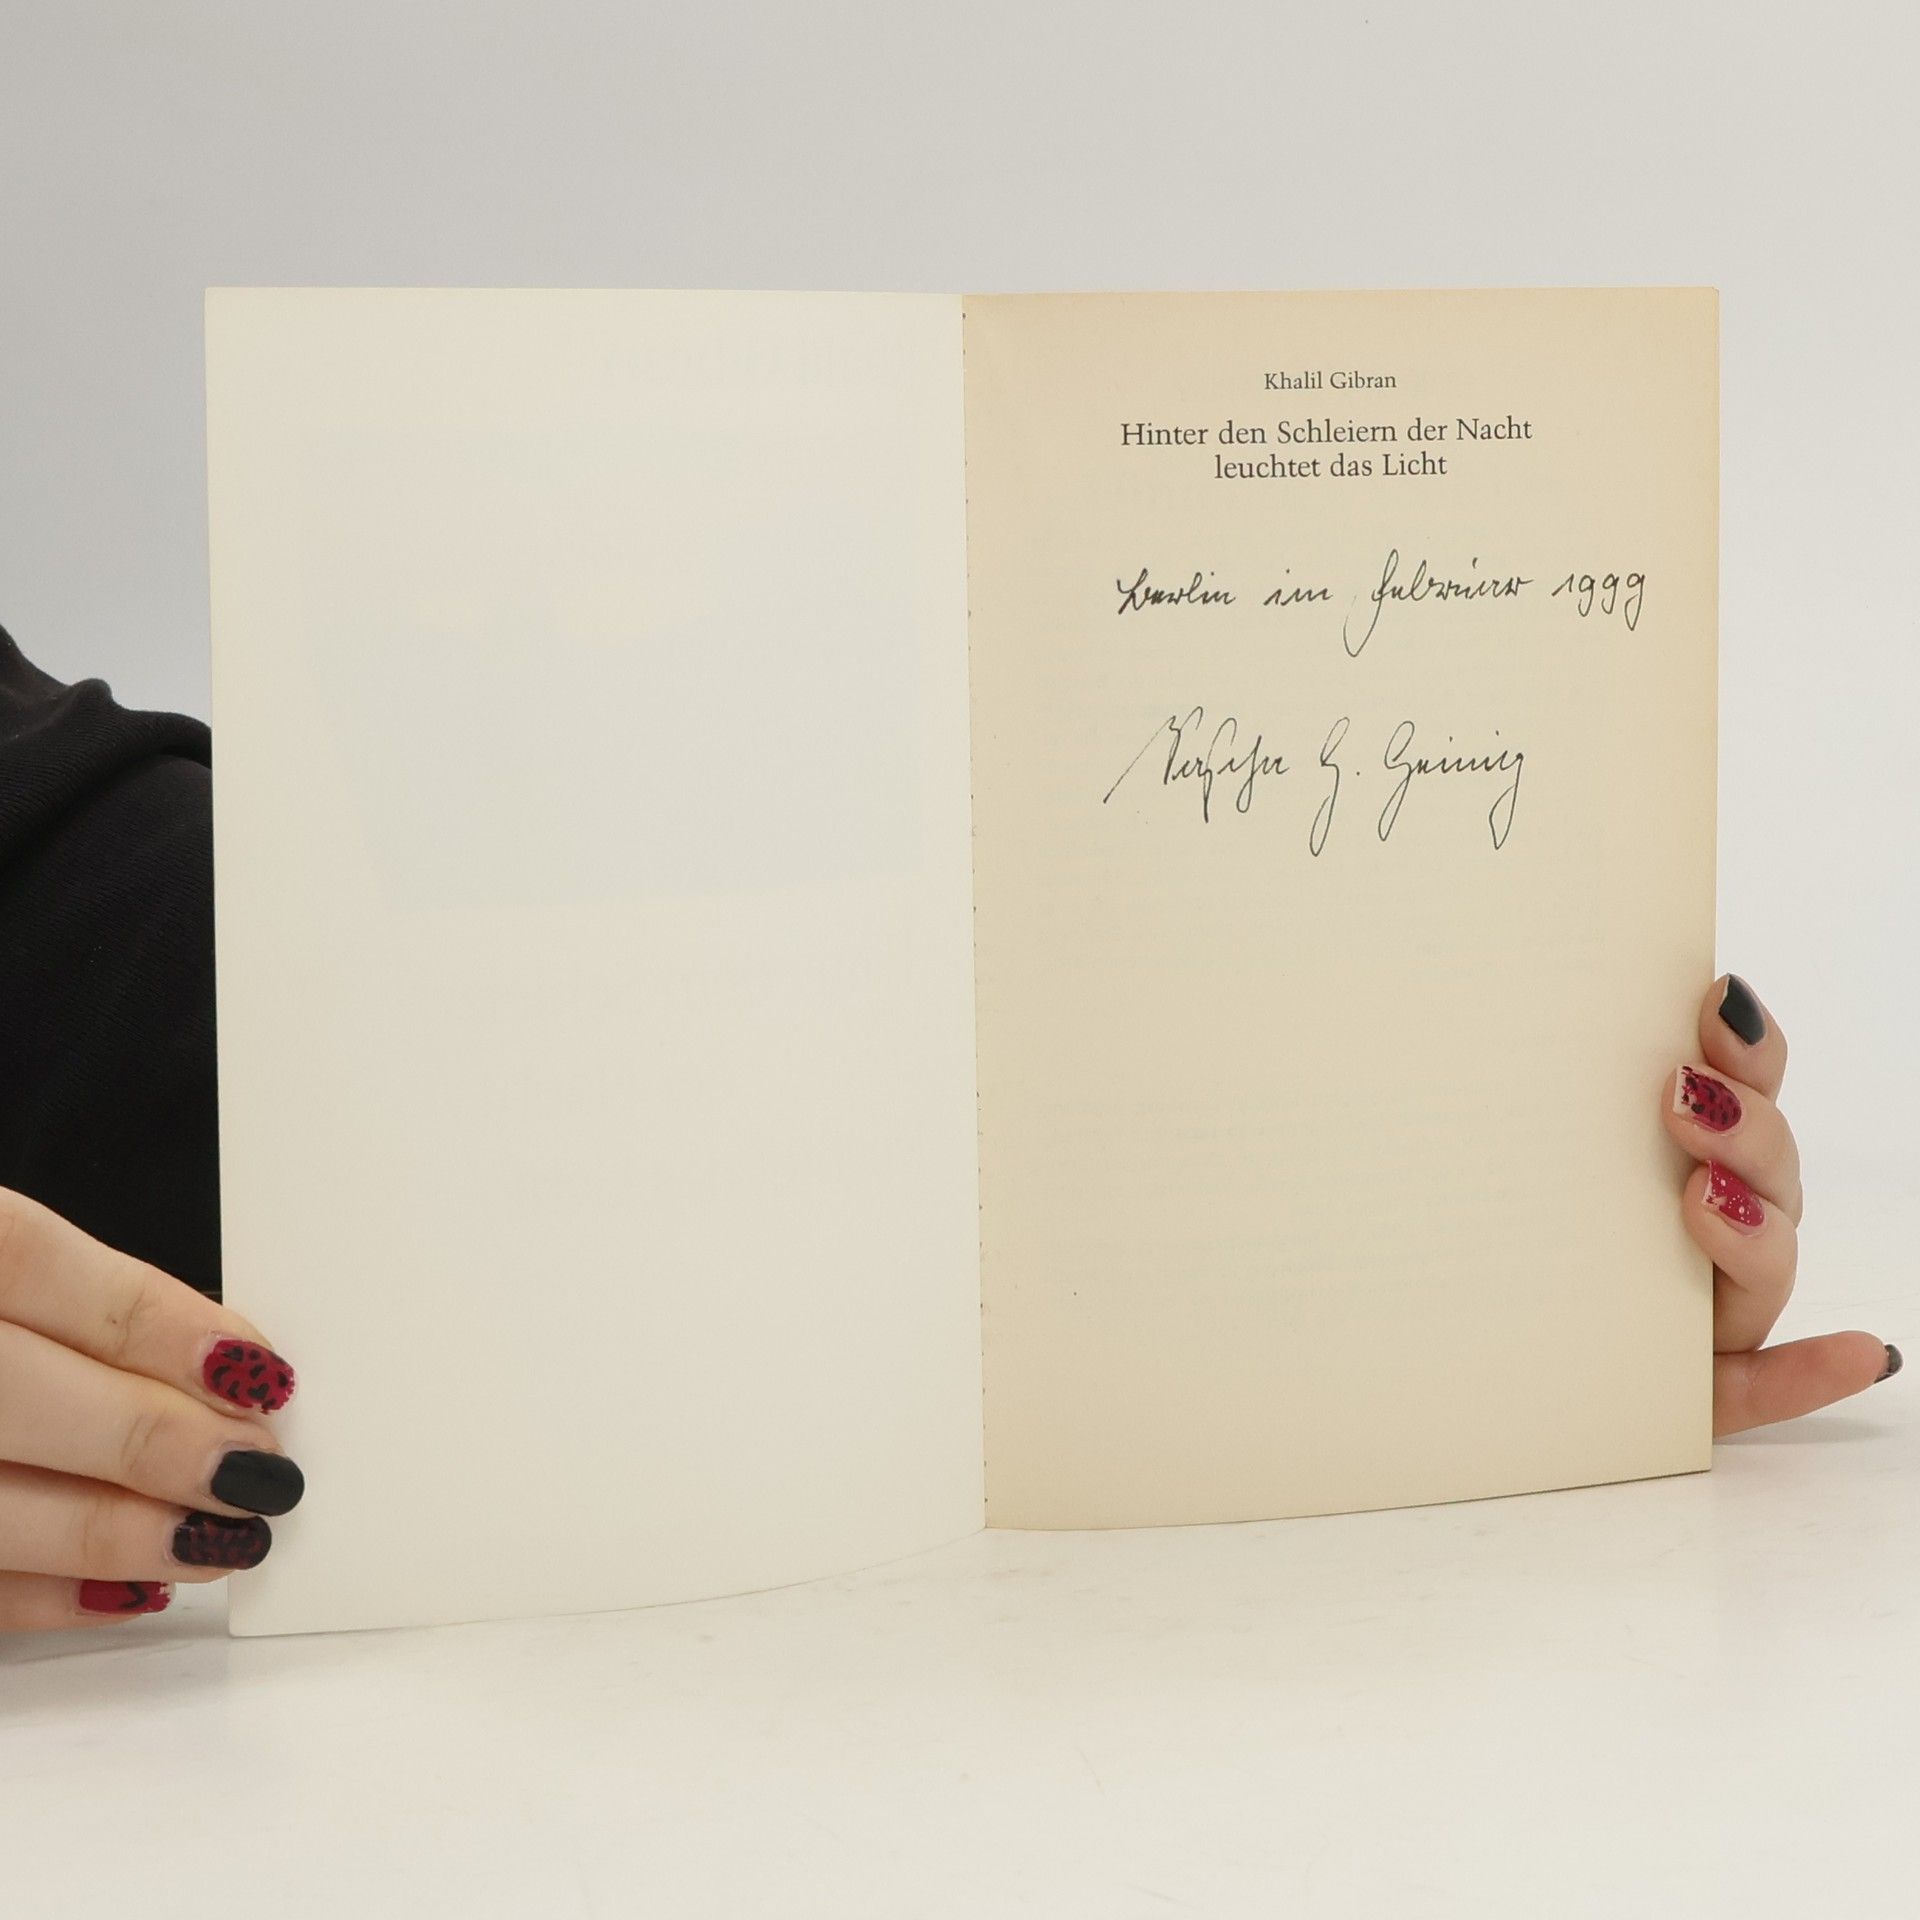 Khalil Gibran
Hinter den Schleiern der Nacht
leuchtet das Licht
Berlin im Februar 1999
G.